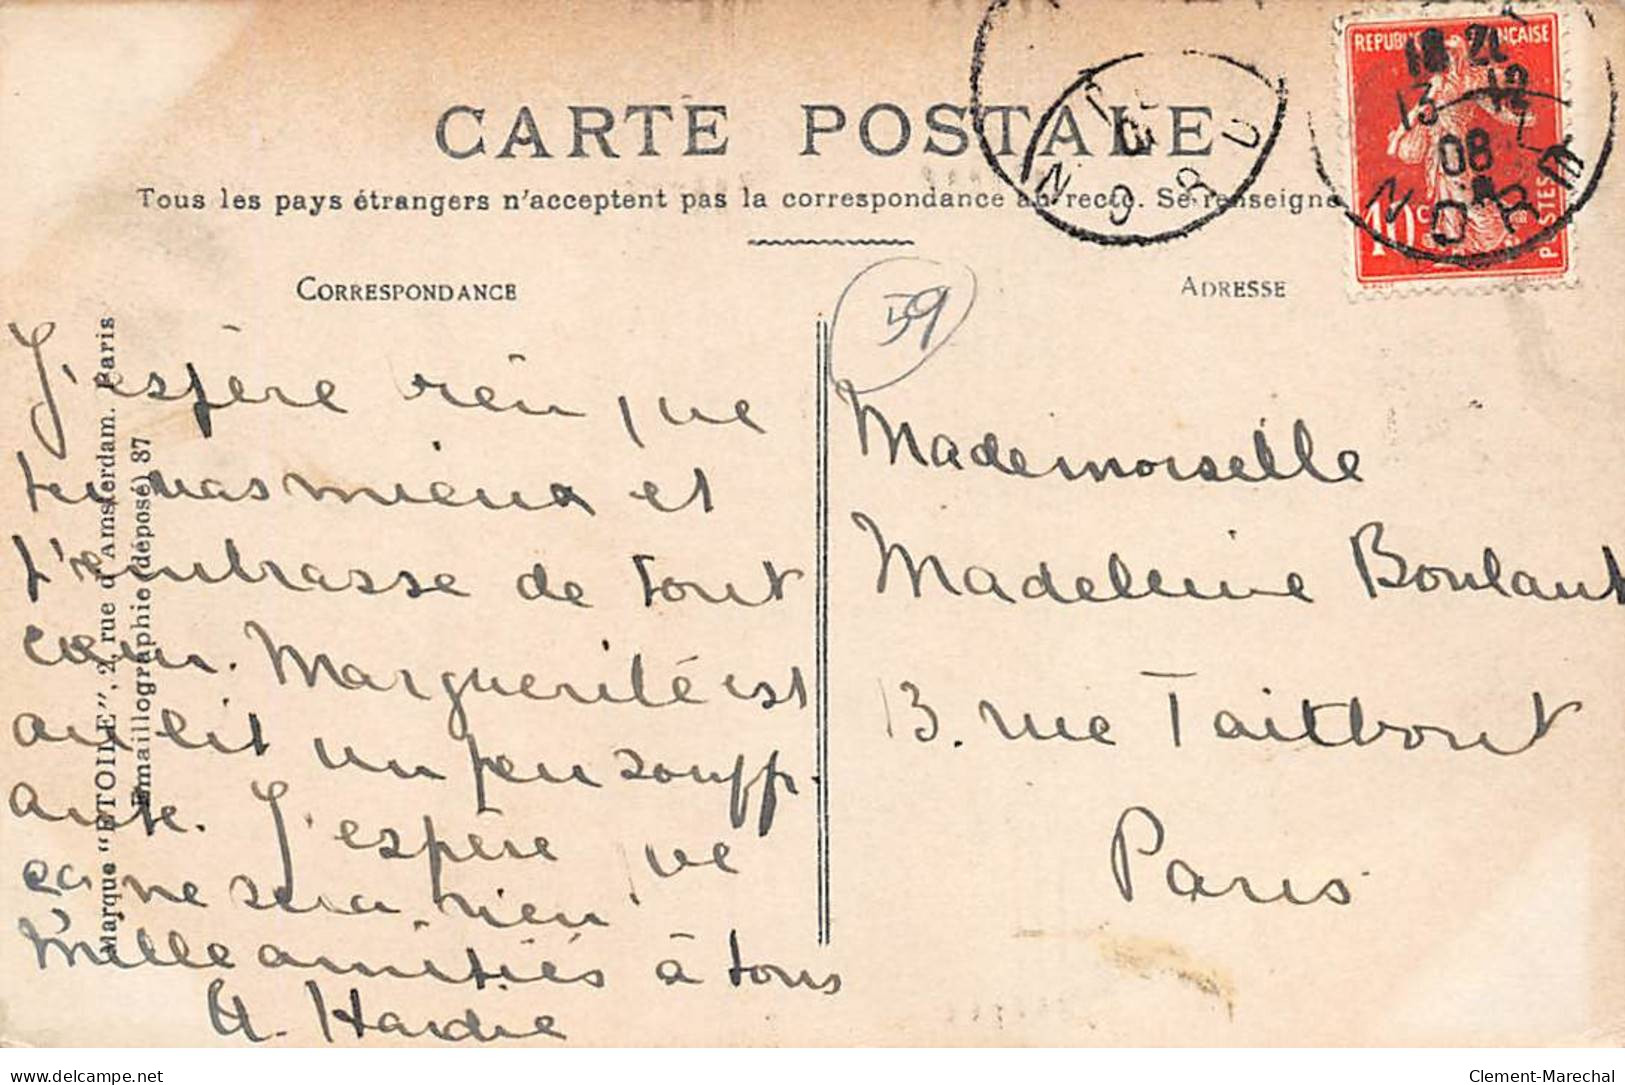 CARTE POSTALE
Tous les pays étrangers n'acceptent pas la correspondance au recto. Se renseigne
CORRESPONDANCE
ADRESSE
REPUBLIQUE FRANÇAISE
10 c
POSTES
18 21
13 12
08
NORD
NORD
59
J'espère rien que
tu vas mieux et
t'embrasse de tout
cœur. Marguerite est
au lit un peu souff-
ante. J'espère que
ça ne sera rien
Mille amitiés à tous
Mademoiselle
Madeleine Boulant
13. rue Taitbout
Paris
Marque "ETOILE", 2, rue d'Amsterdam. Paris
Emaillographie (déposé) 87
Clement-Marechal